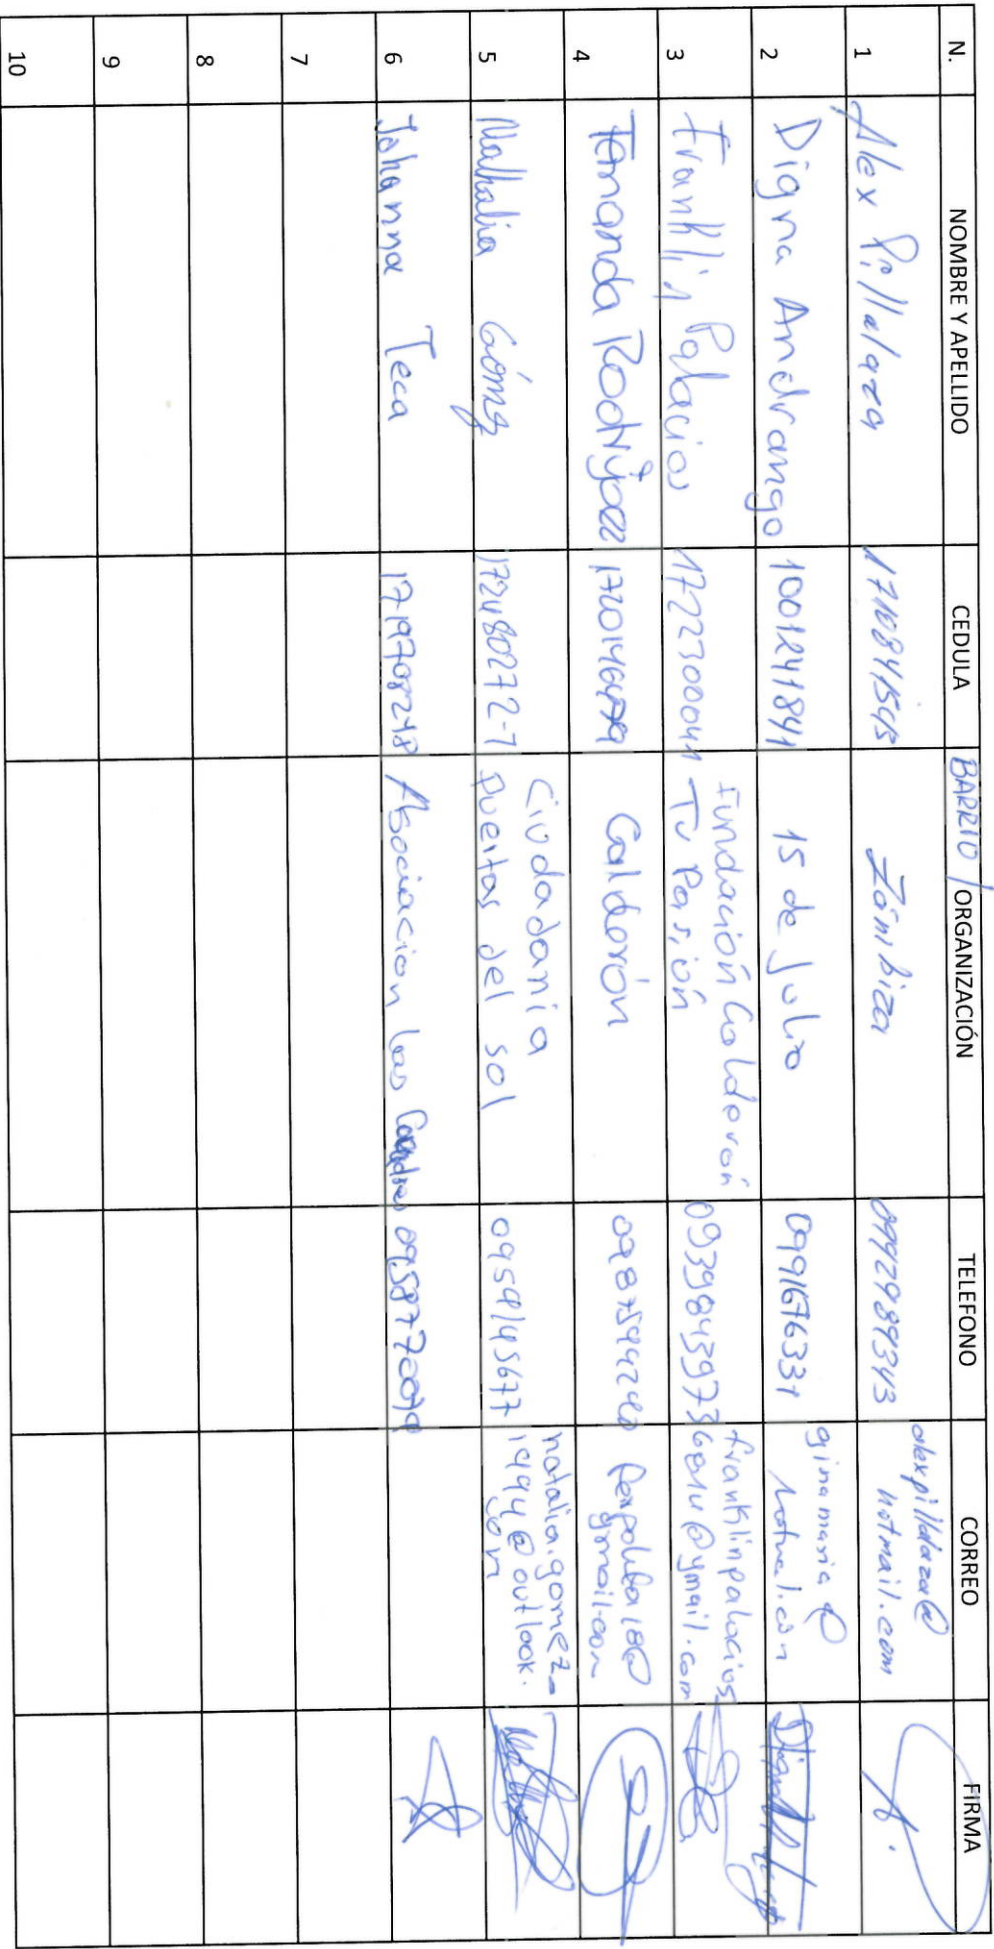 N. NOMBRE Y APELLIDO CEDULA BARRIO / ORGANIZACIÓN TELEFONO CORREO FIRMA
1 Alex Pillalaza 1710841545 Zámbiza 0992989343 alexpillalaza@
hotmail.com
2 Digna Andrango 1001241841 15 de Julio 0991676331 ginamaria@
hotmail.com
3 Franklin Palacios 1722300041 Fundación Calderón
Tu Pasión 0939843973 franklinpalacios
6814@gmail.com
4 Fernanda Rodríguez Calderón 0987544240
gmail.com
5 Nathalia Gómez 172480272-7 Ciudadania
Puertas del sol 0959145677 natalia.gomez_
1994@outlook.
com
6 Johanna Teca 1719708248 Asociacion Los
7
8
9
10